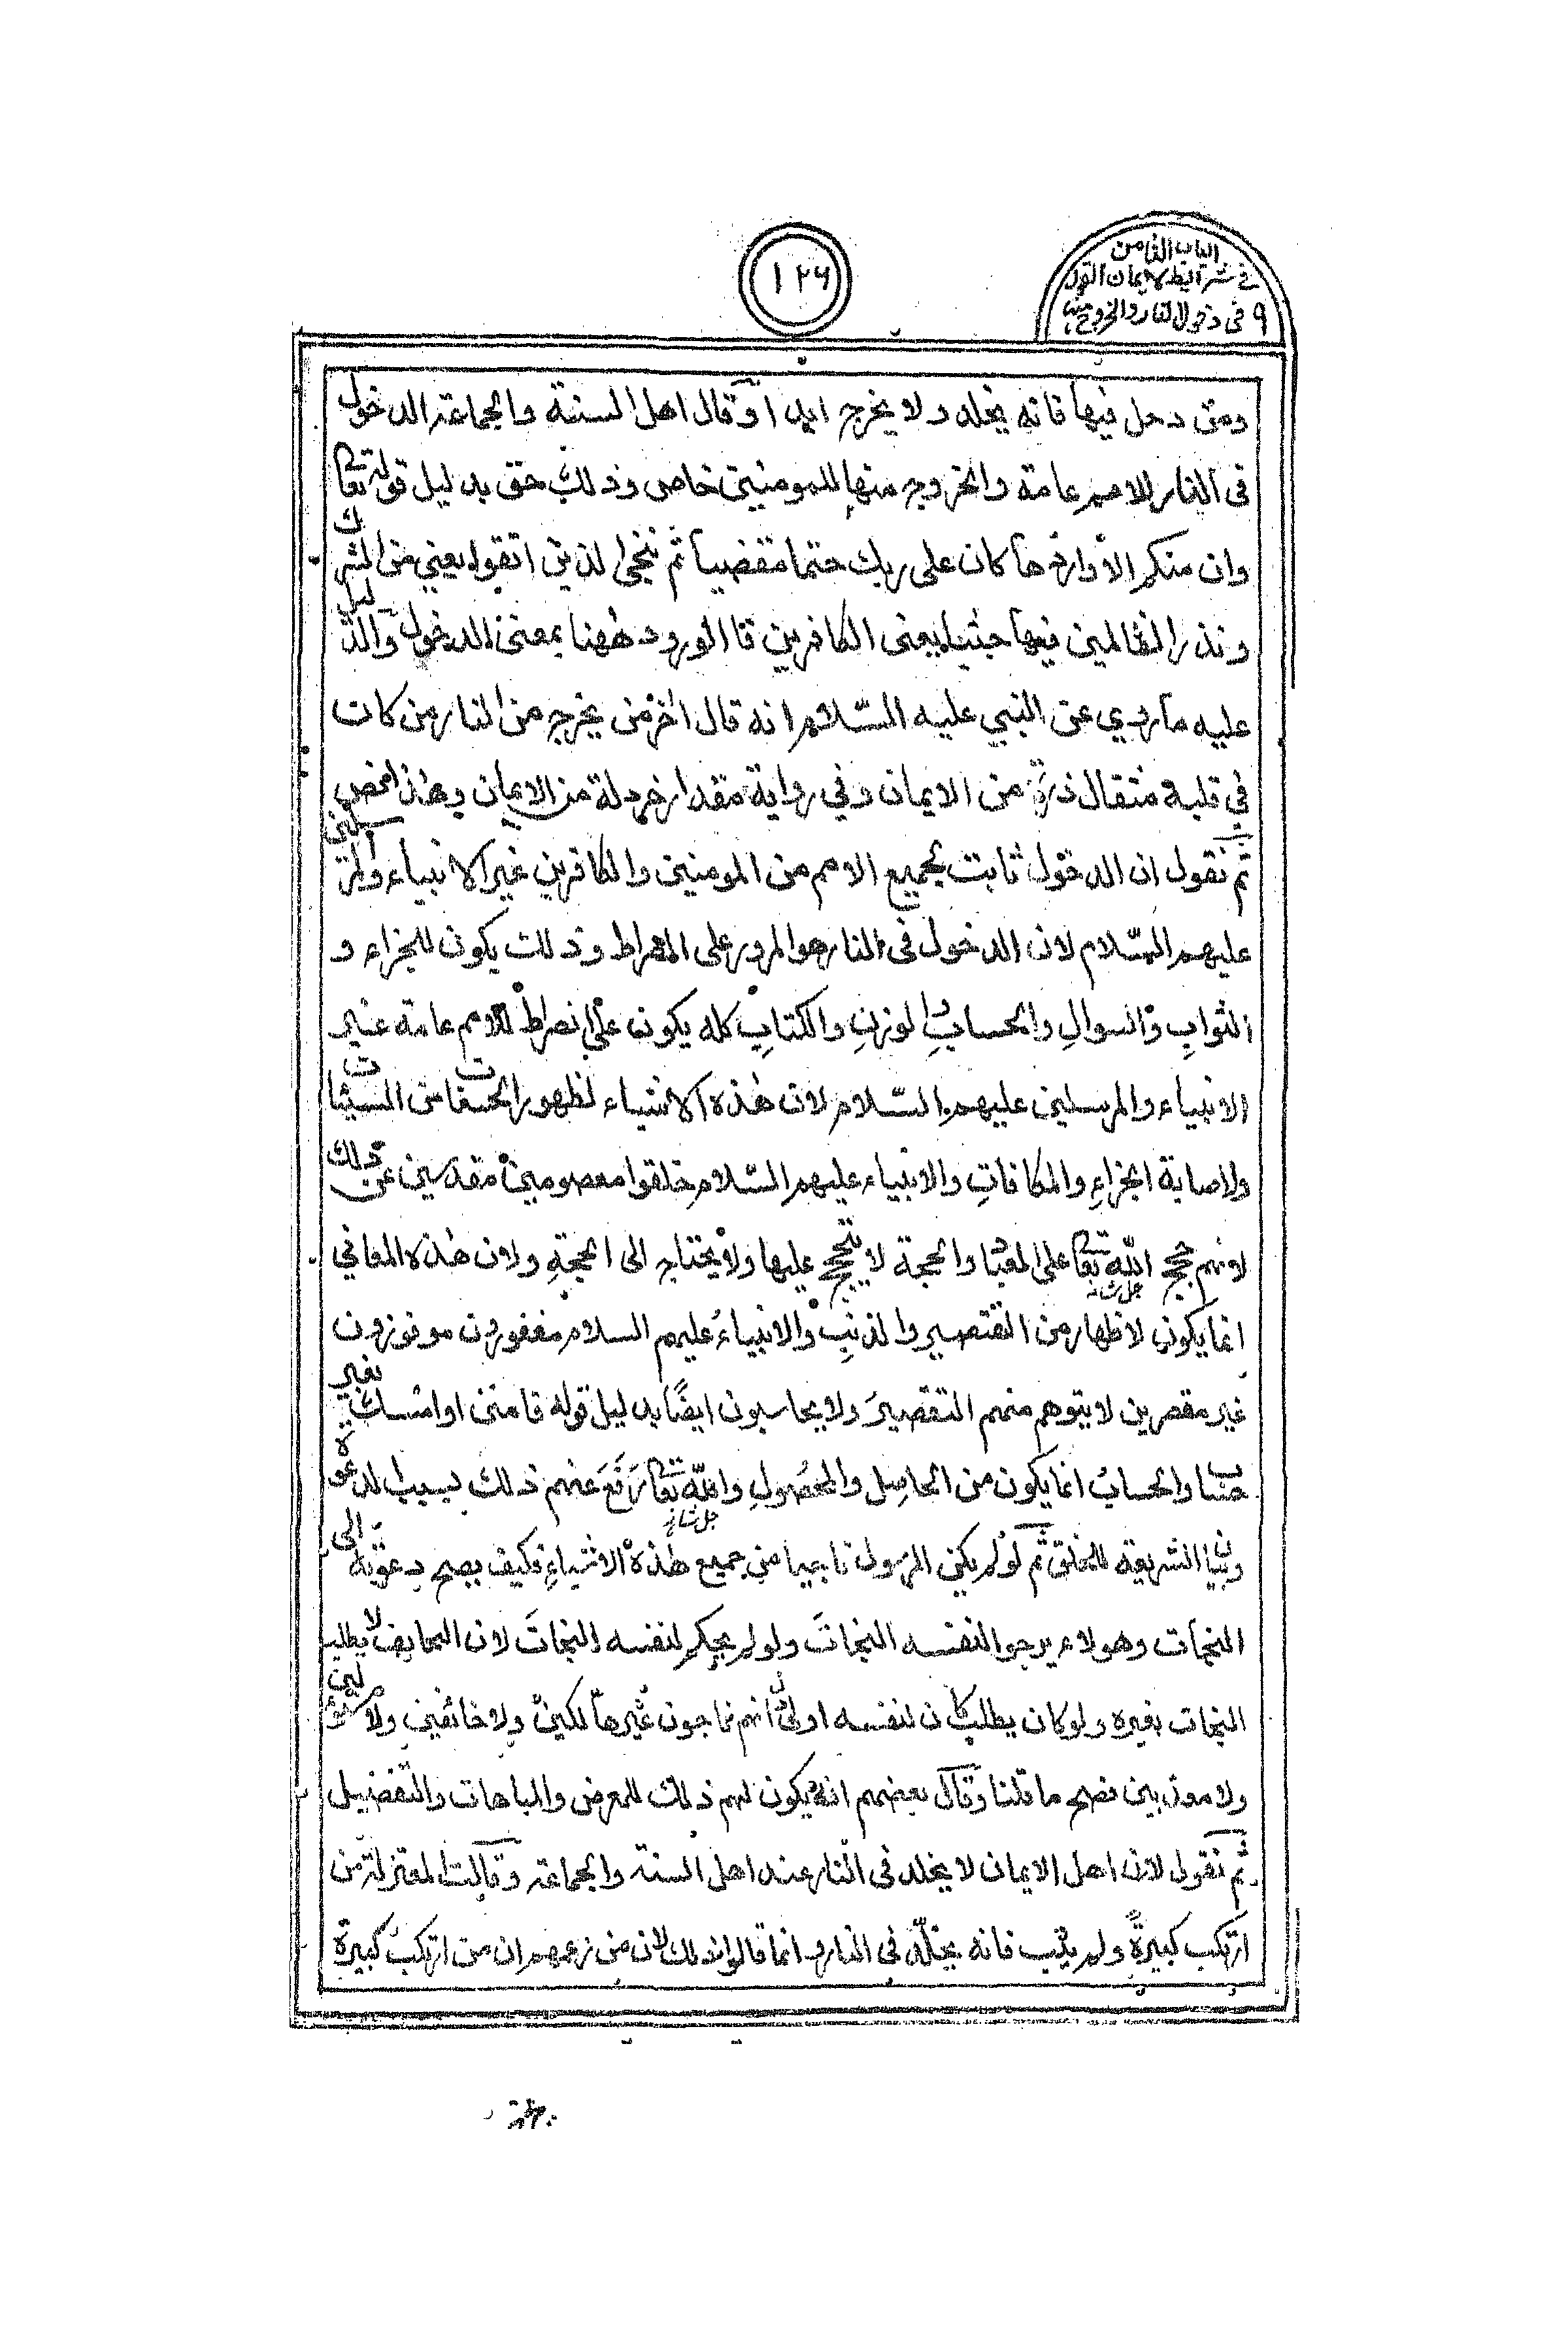 الباب الثامن
في شرايط الايمان القول
٩ في دخول النار والخروج منها
١٢٦
ومتى دخل فيها فانه يخلد ولا يخرج ابدا وقال اهل السنة والجماعة الدخول
في النار للامم عامة والخروج منها للمومنين خاص وذلك حق بدليل قوله تعا
وان منكم الا واردها كان على ربك حتما مقضيا ثم ننجى الذين اتقوا يعني من الشرك
ونذر الظالمين فيها جثيا يعنى الكافرين فا الورود ههنا بمعنى الدخول والدليل
عليه ما روي عن النبي عليه السّلام انه قال اخر من يخرج من النار من كان
في قلبه مثقال ذرة من الايمان وفي رواية مقدار خردلة من الايمان وهذا محض
ثم نقول ان الدخول ثابت لجميع الامم من المومنين والكافرين غير الانبياء والمرسلين
عليهم السّلام لان الدخول في النار هو المرور على الصراط وذلك يكون للجزاء و
الثوابِ والسوالِ والحسابِ والوزنِ والكتابِ كله يكون على الصراط للامم عامة غير
الانبياء والمرسلين عليهم السّلام لان هذه الاشياء لظهور الحسنات من السيئات
ولاصابة الجزاءِ والمكافاتِ والانبياء عليهم السّلام خلقوا معصومين مقدسين عن ذلك
لانهم حجج الله تعا جل شانه على العباد والحجة لا يحتجج عليها ولا يحتاج الى الحجةِ ولان هذه المعاني
انما يكون لاظهار من التقصير والذنبِ والانبياءُ عليهم السلام مغفورون موفوزون
غير مقصرين لا يتوهم منهم التقصيرَ ولا يحاسبون ايضًا بدليل قوله فامنن او امسك بغير
حساب والحسابُ انما يكون من الحاصِل والمحصُولِ والله تعا جل شانه رَفَعَ عنهم ذلك لسبب الدعوة
وبيان الشريعة للخلق ثم لو لم يكن الرسول ناجيا من جميع هذه الاشياءِ فكيف يصح دعوته الى
النجات وهولاء يرجوا لنفسه النجاتَ ولو لم يحكم لنفسه النجاتَ لان الخايف لا يطلب
النجات بغيره ولو كان يطلب كان لنفسه اولى انهم ناجون غير هالكين ولا خائفين ولا مسئولين
ولا معذبين فصح ما قلنا وقال بعضهم انه يكون لهم ذلك للعرض والمباهات والتفضيل
ثم نقول لان اهل الايمان لا يخلد في النار عند اهل السنة والجماعة وقالت المعتزلة من
ارتكب كبيرةً ولم يتب فانه يخلّد في النار وانما قالوا ذلك لان من زعمهم ان من ارتكب كبيرة